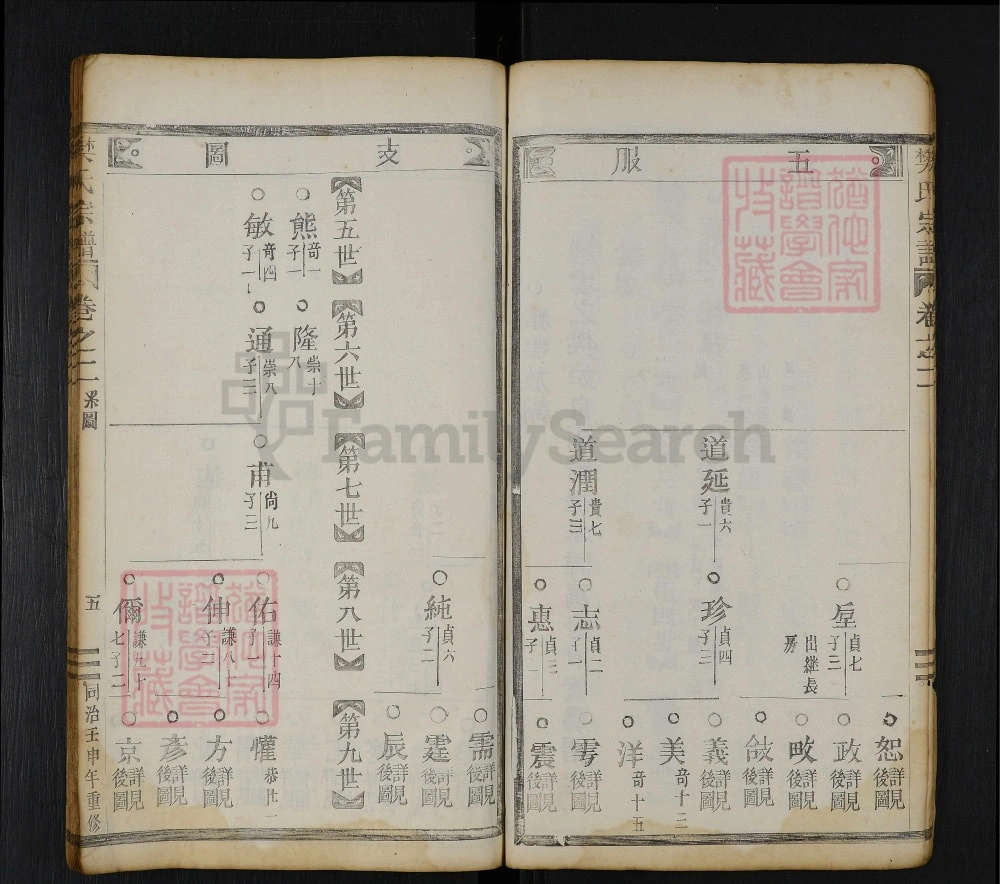 樊氏宗譜
卷之二
五服
恕 詳見後圖
政 詳見後圖
畋 詳見後圖
敆 詳見後圖
垕 貞七 子三
出繼長房
道延 貴六 子一
珍 貞四 子三
義 詳見後圖
美 奇十三
洋 奇十五
道潤 貴七 子三
志 貞二 子一
雩 詳見後圖
惠 貞三 子一
震 詳見後圖
支圖
需 詳見後圖
純 貞六 子二
霆 詳見後圖
辰 詳見後圖
第五世
第六世
第七世
第八世
第九世
熊 奇一 子一
隆 崇十八
敏 奇四 子一
通 崇八 子三
甫 尚九 子三
佑 謙十四
懽 恭卅一
伸 謙八十 子二
方 詳見後圖
彥 詳見後圖
儞 謙九十七 子二
京 詳見後圖
樊氏宗譜
卷之二
系圖
五
同治壬申年重修
猶他家譜學會特藏
猶他家譜學會特藏
FamilySearch